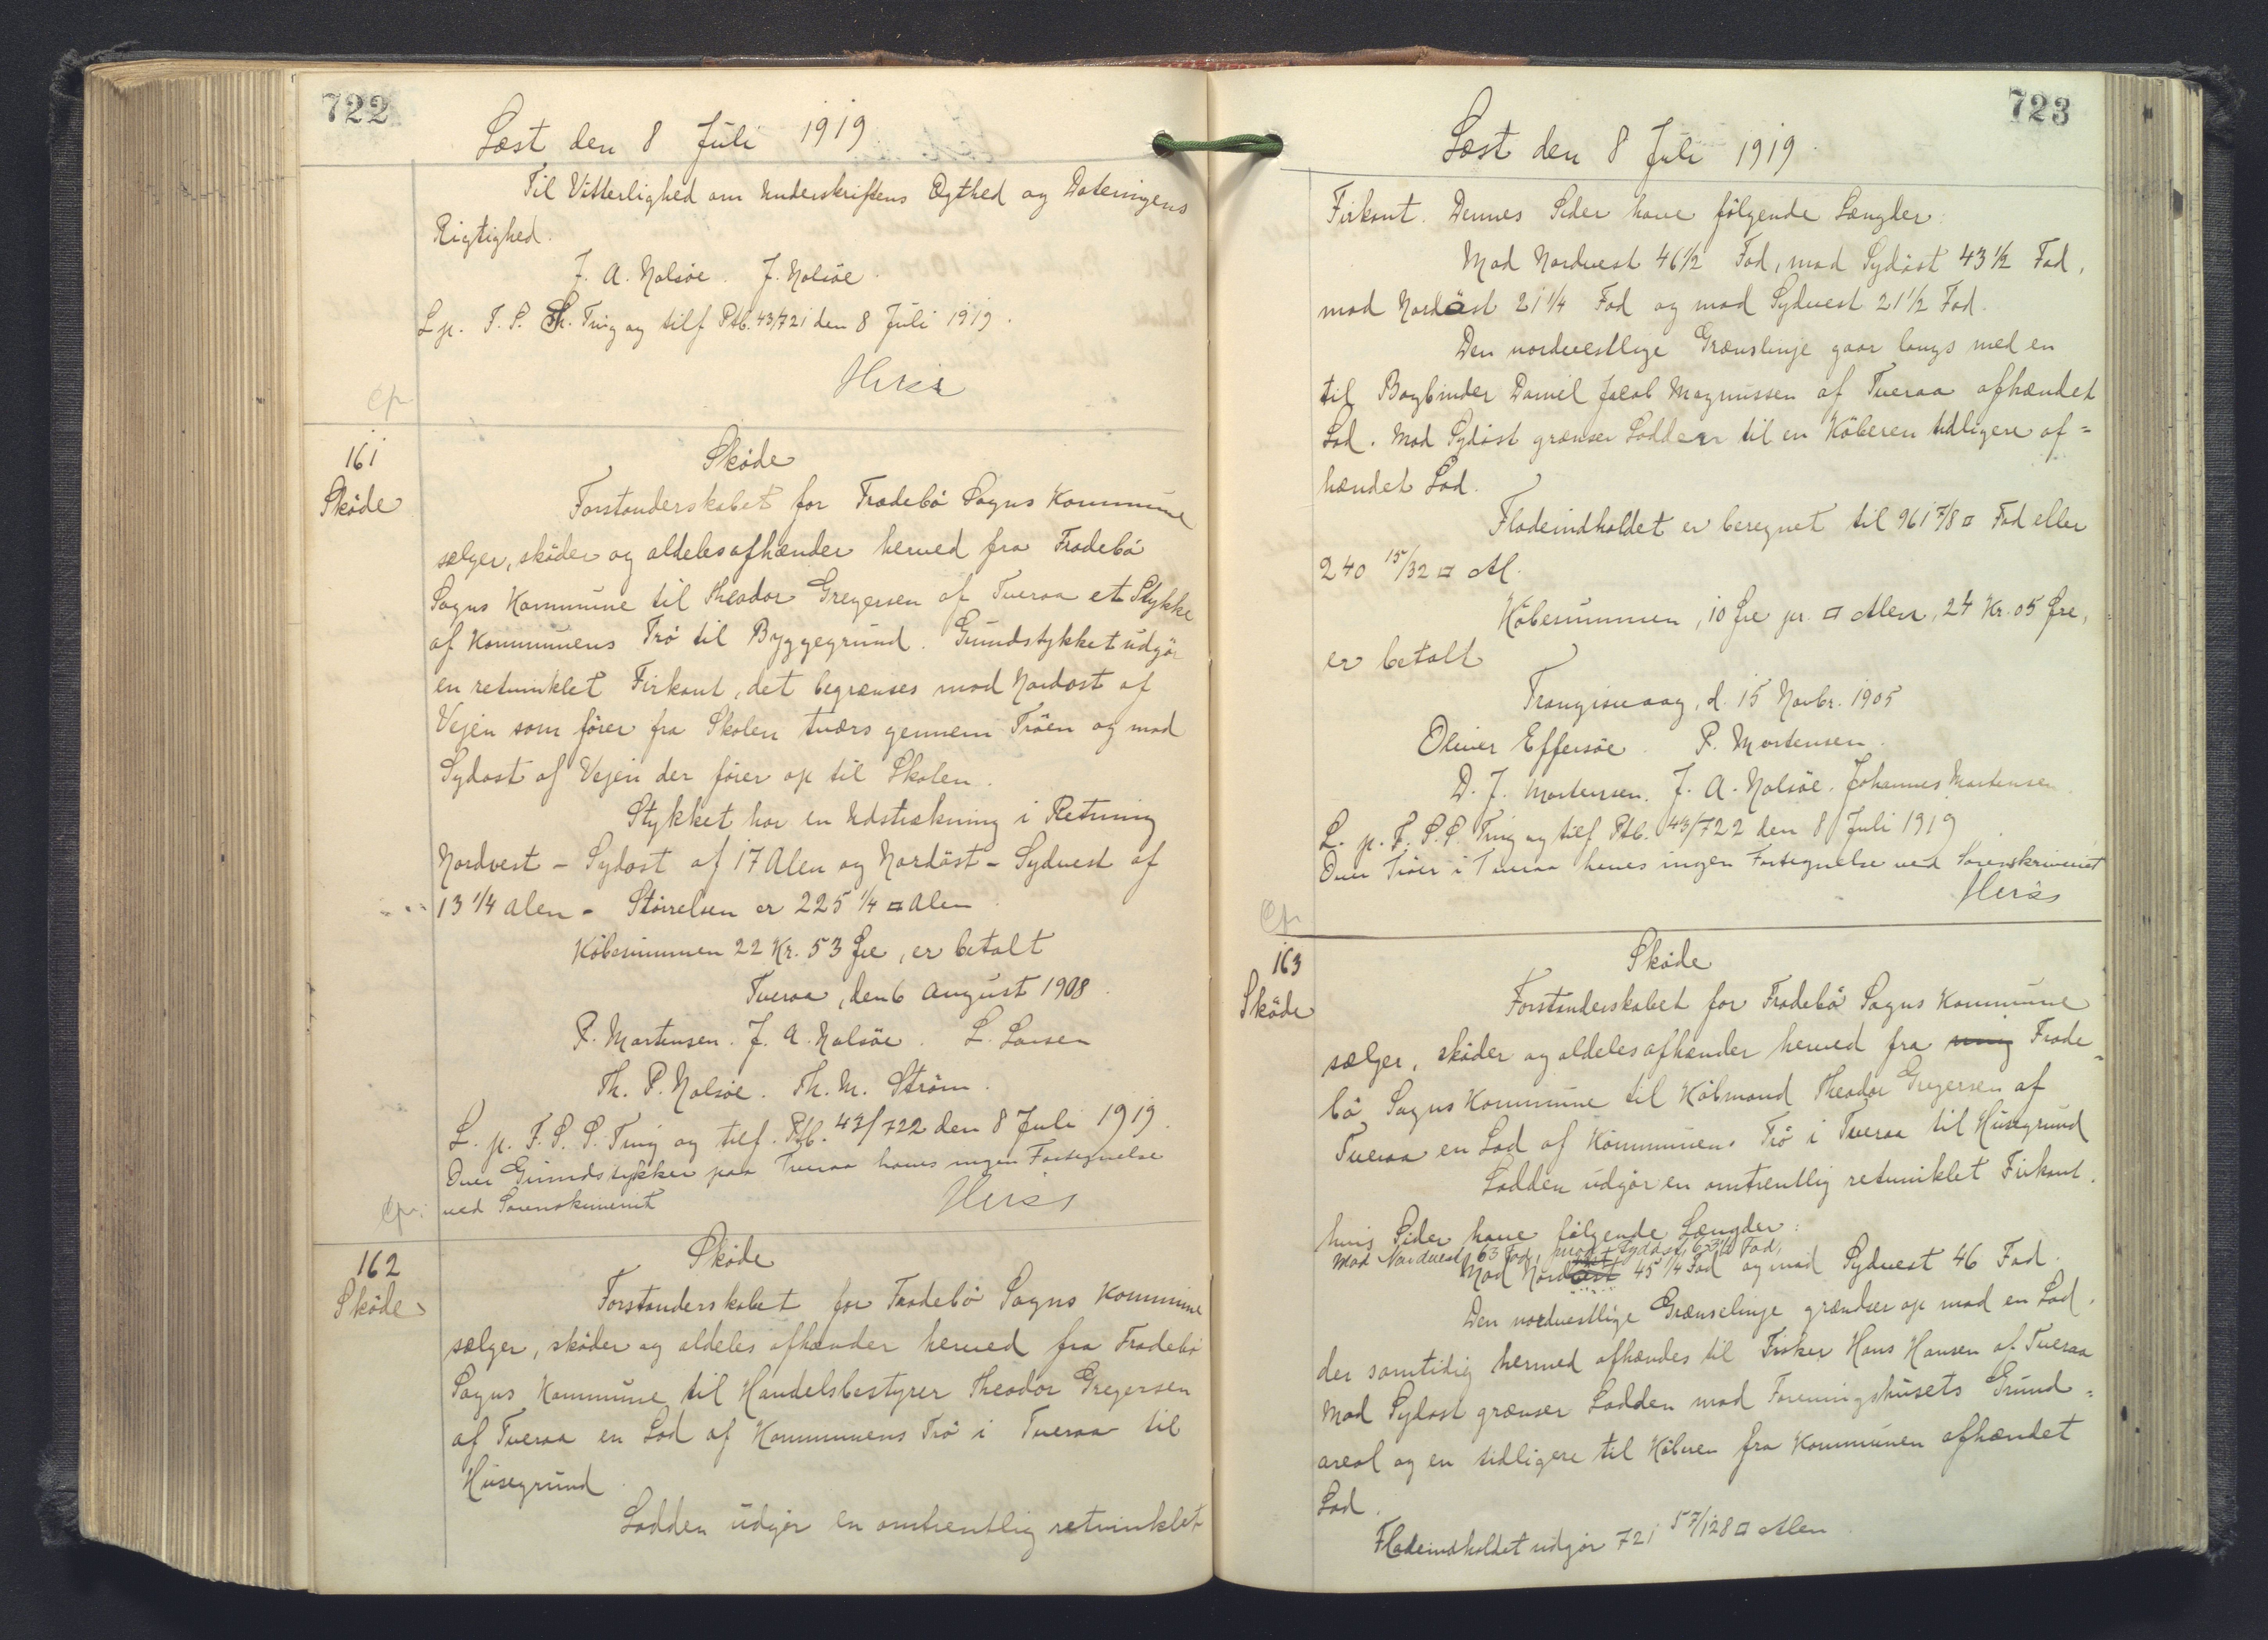 722
Læst den 8 Juli 1919
Til Vitterlighed om Underskriftens Ægthed og Dateringens
Rigtighed.
J. A. Nolsöe. J. Nolsöe.
L. p. F. S. Th. Ting og tilf. Ptb. 43/721 den 8 Juli 1919.
161
Sköde
Sköde
Forstanderskabet for Frodebö Sogns Kommune
sælger, sköder og aldeles afhænder herved fra Frodebö
Sogns Kommune til Theodor Gregersen af Tveraa et Stykke
af Kommunens Trö til Byggegrund. Grundstykket udgör
en retvinklet Firkant, det begrænses mod Nordost af
Vejen som förer fra Skolen tværs gennem Tröen og mod
Sydost af Vejen der förer op til Skolen.
Stykket har en Udstrækning i Retning
Nordvest - Sydost af 17 Alen og Nordöst - Sydvest af
13 1/4 Alen - Störrelsen er 225 1/4 □ Alen
Köbesummen 22 Kr. 53 Öre, er betalt
Tveraa, den 6 August 1908.
P. Mortensen. J. A. Nolsöe. L. Larsen
Th. P. Nolsöe. Th. M. Ström.
L. p. F. S. S. Ting og tilf. Ptb. 43/722 den 8 Juli 1919.
Over Grundstykker paa Tveraa haves ingen Fortegnelse
ved Sorenskriveriet
162
Sköde
Sköde
Forstanderskabet for Frodebö Sogns Kommune
sælger, sköder og aldeles afhænder herved fra Frodebö
Sogns Kommune til Handelsbestyrer Theodor Gregersen
af Tveraa en Lod af Kommunens Trö i Tveraa til
Husegrund
Lodden udgör en omtrentlig retvinklet
723
Læst den 8 Juli 1919.
Firkant. Dennes Sider have fölgende Længder:
Mod Nordvest 46 1/2 Fod, mod Sydöst 43 1/2 Fod,
mod Nordöst 21 1/4 Fod og mod Sydvest 21 1/2 Fod.
Den nordvestlige Grænslinje gaar langs med en
til Bogbinder Daniel Jacob Magnussen af Tveraa afhændet
Lod. Mod Sydöst grænser Lodden til en Köberen tidligere af=
hændet Lod.
Fladeindholdet er beregnet til 961 7/8 □ Fod eller
240 15/32 □ Al.
Köbesummen, 10 Öre pr. □ Alen, 24 Kr. 05 Öre,
er betalt
Trangisvaag, d. 15 Novbr. 1905
Oliver Effersöe. P. Mortensen.
D. J. Mortensen. J. A. Nolsöe. Johannes Mortensen
L. p. F. S. S. Ting og tilf. Ptb. 43/722 den 8 Juli 1919
Over Tröer i Tveraa haves ingen Fortegnelse ved Sorenskriveriet
163
Sköde
Sköde
Forstanderskabet for Frodebö Sogns Kommune
sælger, sköder og aldeles afhænder herved fra mig Frode=
bö Sogns Kommune til Köbmand Theodor Gregersen af
Tveraa en Lod af Kommunens Trö i Tveraa til Husegrund
Lodden udgör en omtrentlig retvinklet Firkant,
hvis Sider have fölgende Længder:
Mod Nordvest 63 Fod, mod Sydöst 63 1/2 Fod,
Mod Nordöst 45 1/4 Fod og mod Sydvest 46 Fod.
Den nordvestlige Grænselinje grændser op mod en Lod,
der samtidig hermed afhændes til Fisker Hans Hansen af Tveraa
Mod Sydost grænser Lodden mod Foreningshusets Grund=
areal og en tidligere til Köberen fra Kommunen afhændet
Lod.
Fladeindholdet udgör 721 57/128 □ Alen